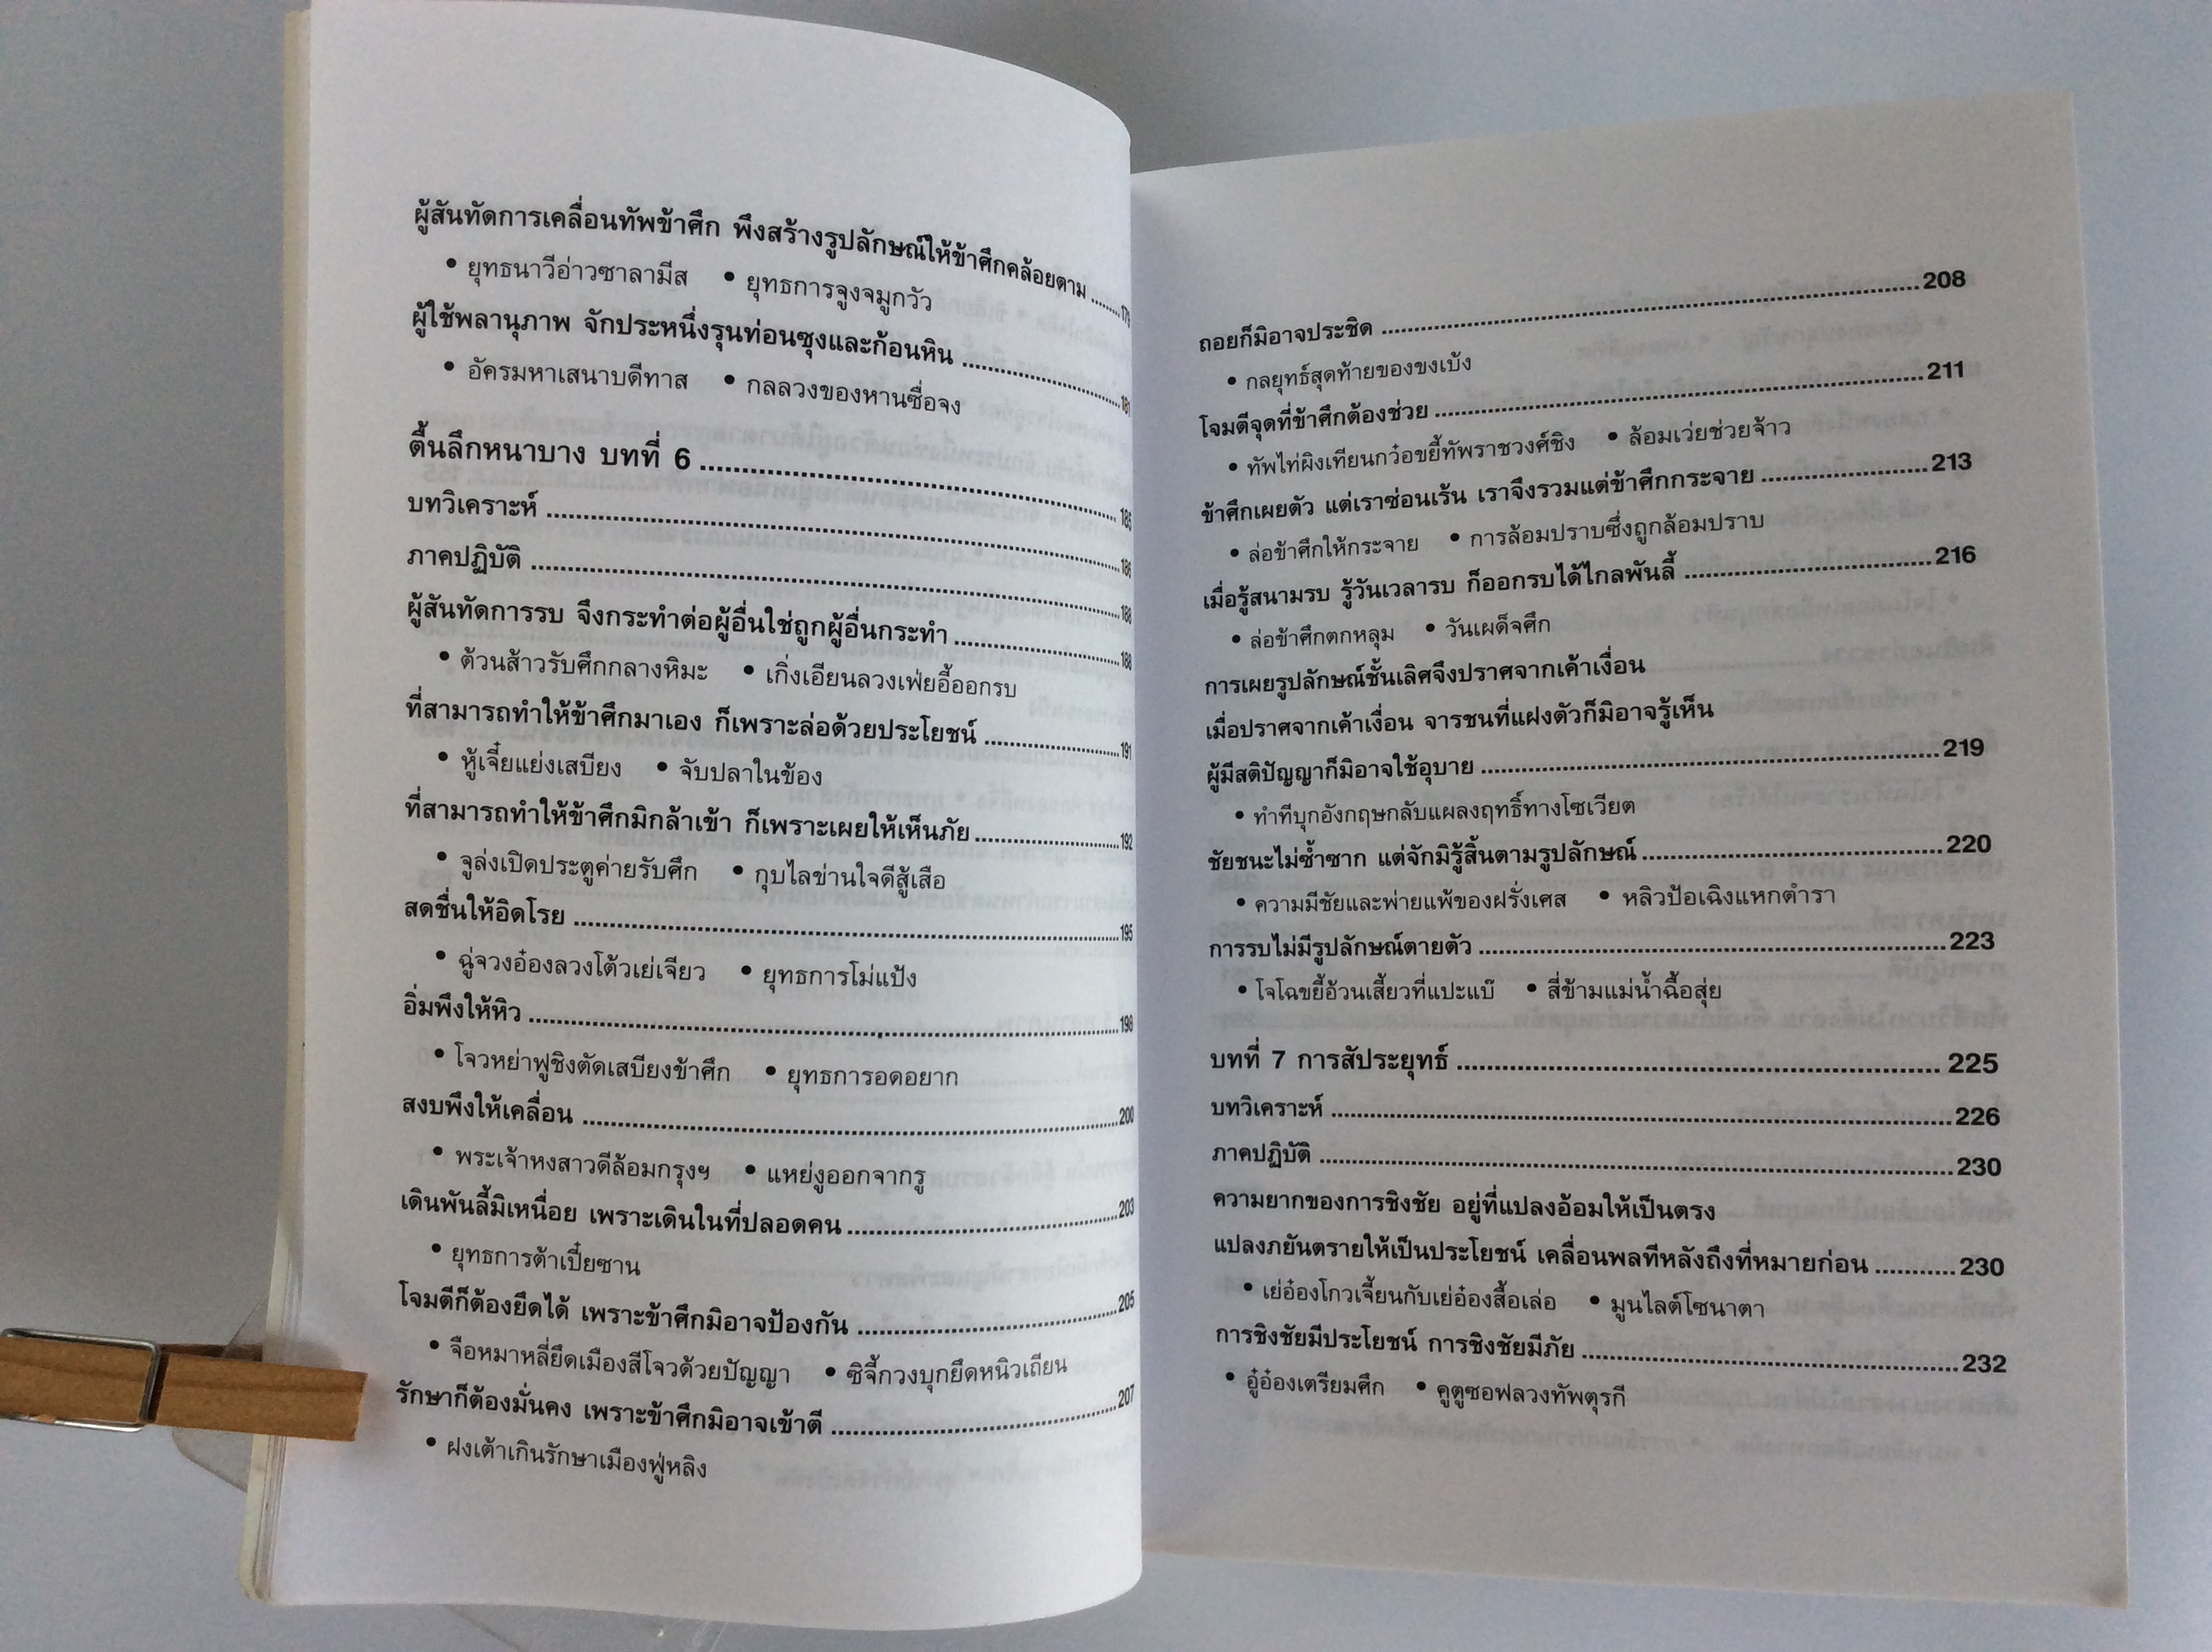 ผู้สันทัดการเคลื่อนทัพข้าศึก พึงสร้างรูปลักษณ์ให้ข้าศึกคล้อยตาม ........179
• ยุทธนาวีอ่าวซาลามีส • ยุทธการจูงจมูกวัว
ผู้ใช้พลานุภาพ จักประหนึ่งรุนท่อนซุงและก้อนหิน ........181
• อัครมหาเสนาบดีทาส • กลลวงของหานซื่อจง
ตื้นลึกหนาบาง บทที่ 6 ........185
บทวิเคราะห์ ........186
ภาคปฏิบัติ ........188
ผู้สันทัดการรบ จึงกระทำต่อผู้อื่นใช่ถูกผู้อื่นกระทำ ........188
• ต้วนส้าวรับศึกกลางหิมะ • เกิ่งเอียนลวงเฟยอี้ออกรบ
ที่สามารถทำให้ข้าศึกมาเอง ก็เพราะล่อด้วยประโยชน์ ........191
• หู้เจี๋ยแย่งเสบียง • จับปลาในข้อง
ที่สามารถทำให้ข้าศึกมิกล้าเข้า ก็เพราะเผยให้เห็นภัย ........192
• จูล่งเปิดประตูค่ายรับศึก • กุบไลข่านใจดีสู้เสือ
สดชื่นให้อิดโรย ........195
• ฉู่จวงอ๋องลวงโต้วเย่เจียว • ยุทธการโม่แป้ง
อิ่มพึงให้หิว ........198
• โจวหย่าฟูชิงตัดเสบียงข้าศึก • ยุทธการอดอยาก
สงบพึงให้เคลื่อน ........200
• พระเจ้าหงสาวดีล้อมกรุงฯ • แหย่งูออกจากรู
เดินพันลี้มิเหนื่อย เพราะเดินในที่ปลอดคน ........203
• ยุทธการต้าเปี๋ยซาน
โจมตีก็ต้องยึดได้ เพราะข้าศึกมิอาจป้องกัน ........205
• จือหมาหลี่ยึดเมืองสีโจวด้วยปัญญา • ซิจี้กวงบุกยึดหนิวเถียน
รักษาก็ต้องมั่นคง เพราะข้าศึกมิอาจเข้าตี ........207
• ฝงเต้าเกินรักษาเมืองฟู่หลิง
ถอยก็มิอาจประชิด ........208
• กลยุทธ์สุดท้ายของขงเบ้ง
โจมตีจุดที่ข้าศึกต้องช่วย ........211
• ทัพไท่ผิงเทียนกว๋อขยี้ทัพราชวงศ์ชิง • ล้อมเว่ยช่วยจ้าว
ข้าศึกเผยตัว แต่เราซ่อนเร้น เราจึงรวมแต่ข้าศึกกระจาย ........213
• ล่อข้าศึกให้กระจาย • การล้อมปราบซึ่งถูกล้อมปราบ
เมื่อรู้สนามรบ รู้วันเวลารบ ก็ออกรบได้ไกลพันลี้ ........216
• ล่อข้าศึกตกหลุม • วันเผด็จศึก
การเผยรูปลักษณ์ชั้นเลิศจึงปราศจากเค้าเงื่อน
เมื่อปราศจากเค้าเงื่อน จารชนที่แฝงตัวก็มิอาจรู้เห็น
ผู้มีสติปัญญาก็มิอาจใช้อุบาย ........219
• ทำทีบุกอังกฤษกลับแผลงฤทธิ์ทางโซเวียต
ชัยชนะไม่ซ้ำซาก แต่จักมิรู้สิ้นตามรูปลักษณ์ ........220
• ความมีชัยและพ่ายแพ้ของฝรั่งเศส • หลิวป๋อเฉิงแหกตำรา
การรบไม่มีรูปลักษณ์ตายตัว ........223
• โจโฉขยี้อ้วนเสี้ยวที่แปะแบ๊ • สี่ข้ามแม่น้ำฉื้อสุ่ย
บทที่ 7 การสัประยุทธ์ ........225
บทวิเคราะห์ ........226
ภาคปฏิบัติ ........230
ความยากของการชิงชัย อยู่ที่แปลงอ้อมให้เป็นตรง
แปลงภยันตรายให้เป็นประโยชน์ เคลื่อนพลทีหลังถึงที่หมายก่อน ........230
• เย่อ๋องโกวเจี้ยนกับเย่อ๋องสี้อเล่อ • มูนไลต์โซนาตา
การชิงชัยมีประโยชน์ การชิงชัยมีภัย ........232
• อู๋อ๋องเตรียมศึก • คูตูซอฟลวงทัพตุรกี